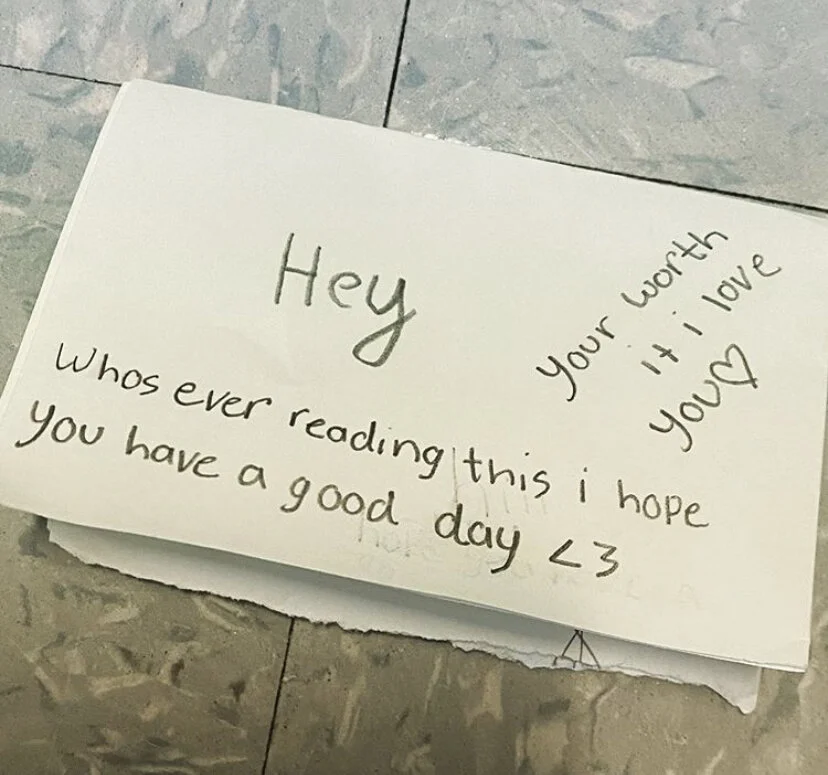 Hey
Whos ever reading this i hope
you have a good day <3
your worth
it i love
you♡